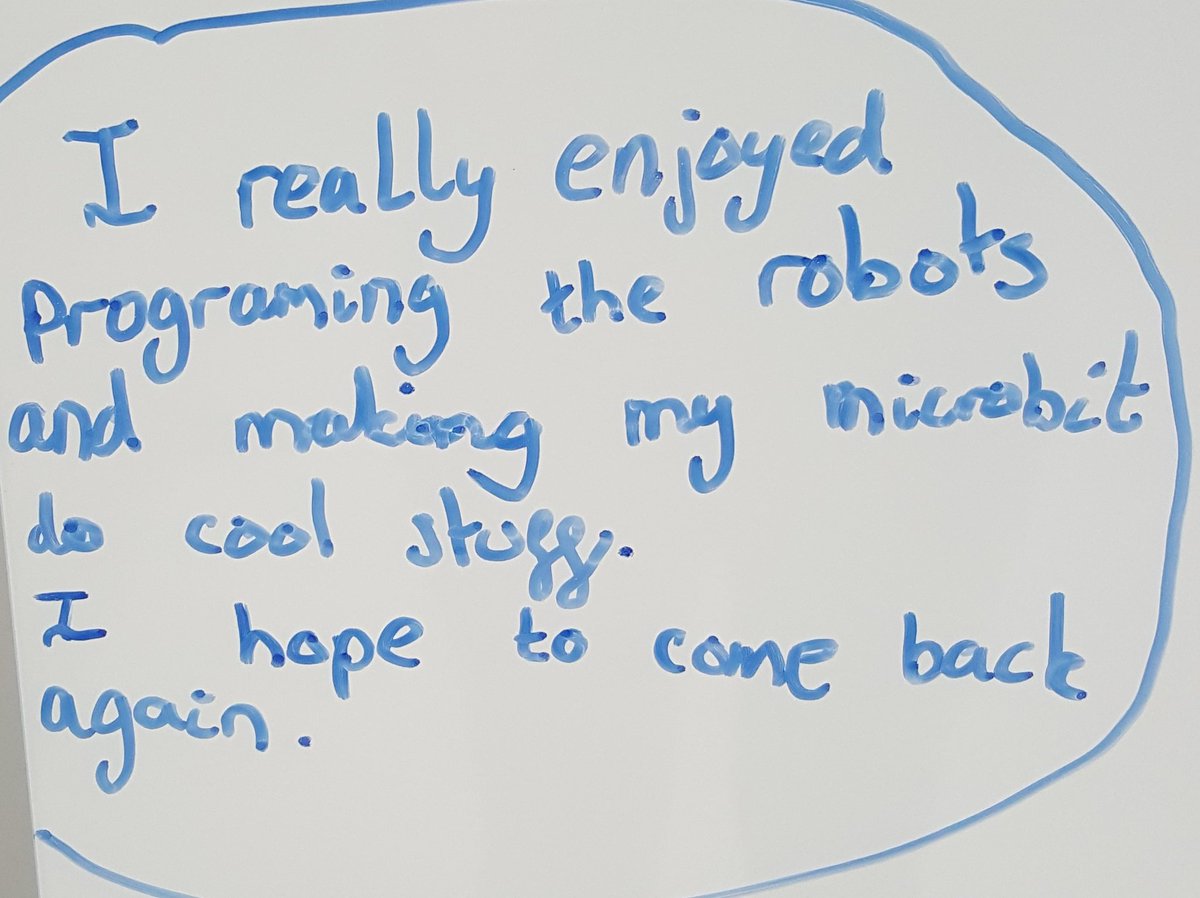 I really enjoyed
programing the robots
and making my microbit
do cool stuff.
I hope to come back
again.